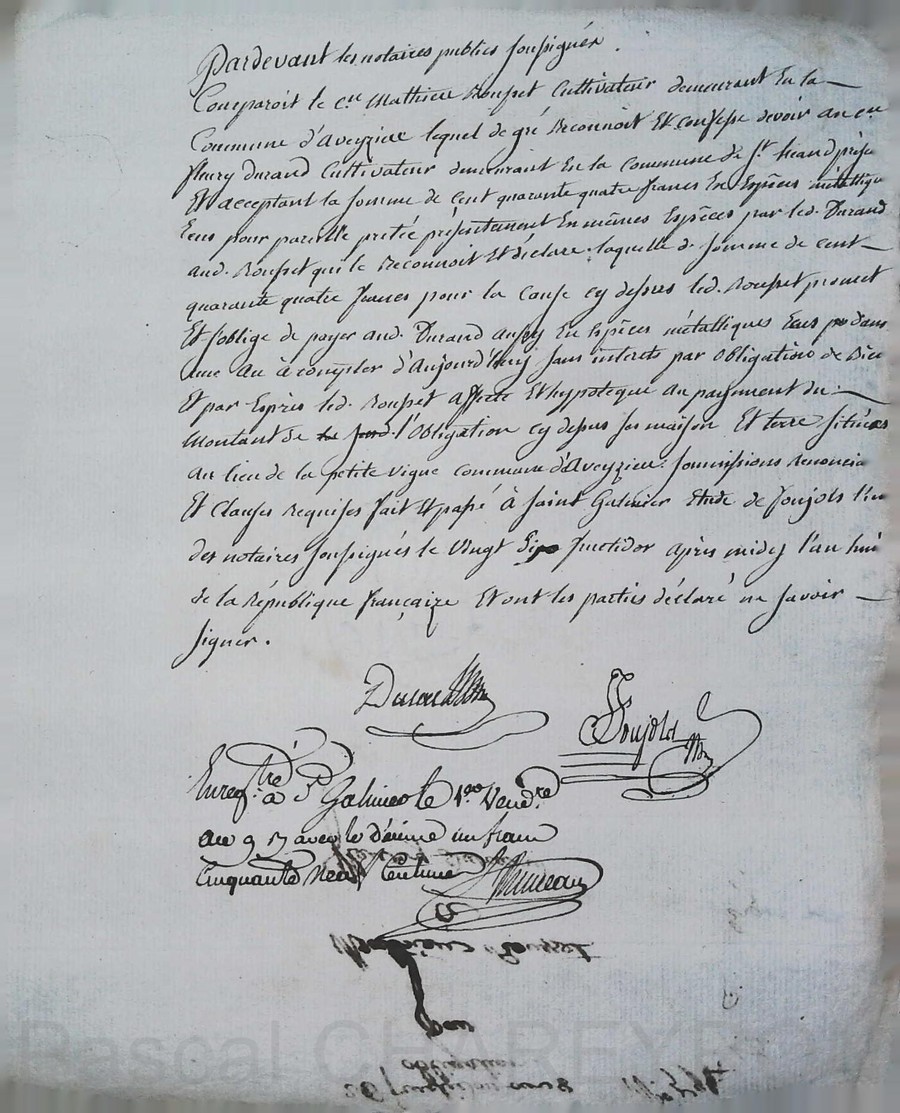 Pardevant les notaires publics soussignés.
Comparoit le cen Mathieu Rousset Cultivateur demeurant En la
Commune d'Aveyzieu lequel de gré Reconnoit Et confesse devoir au cen
fleury Durand Cultivateur demeurant En la commune de St. héand
Et acceptant la somme de Cent quarante quatre francs En Espèces métallique
Eens pour pareille pretée présentement En mêmes Espèces par led. Durand
aud. Rousset qui le Reconnoit Et déclare. laquelle d. somme de cent
quarante quatre francs pour la Cause cy dessus led. Rousset promet
Et s'oblige de payer aud. Durand aussy En Espèces métalliques dans
une an à compter d'Aujourd'huy sans interets par obligation de Bien
Et par Exprès led. Rousset affecte Et hypoteque au payement du
montant de l'obligation cy dessus ses maison Et terre situées
au lieu de la petite vigne commune d'Aveyzieu. soumissions Renoncia
Et Clauses Requises fait Et passé à Saint Galmier Etude de Soujols l'un
des notaires soussignés le Vingt Six fructidor après midy l'an huit
de la République française Et ont les parties déclaré ne savoir
signer.
Soujols
Enregtré à St Galmier le 1er Vendre
an 9 avec le décime un franc
Cinquante neuf Centimes
Mathieu Rousset
pour
obligation
26 fructidor an 8
Pascal CHAREYRON